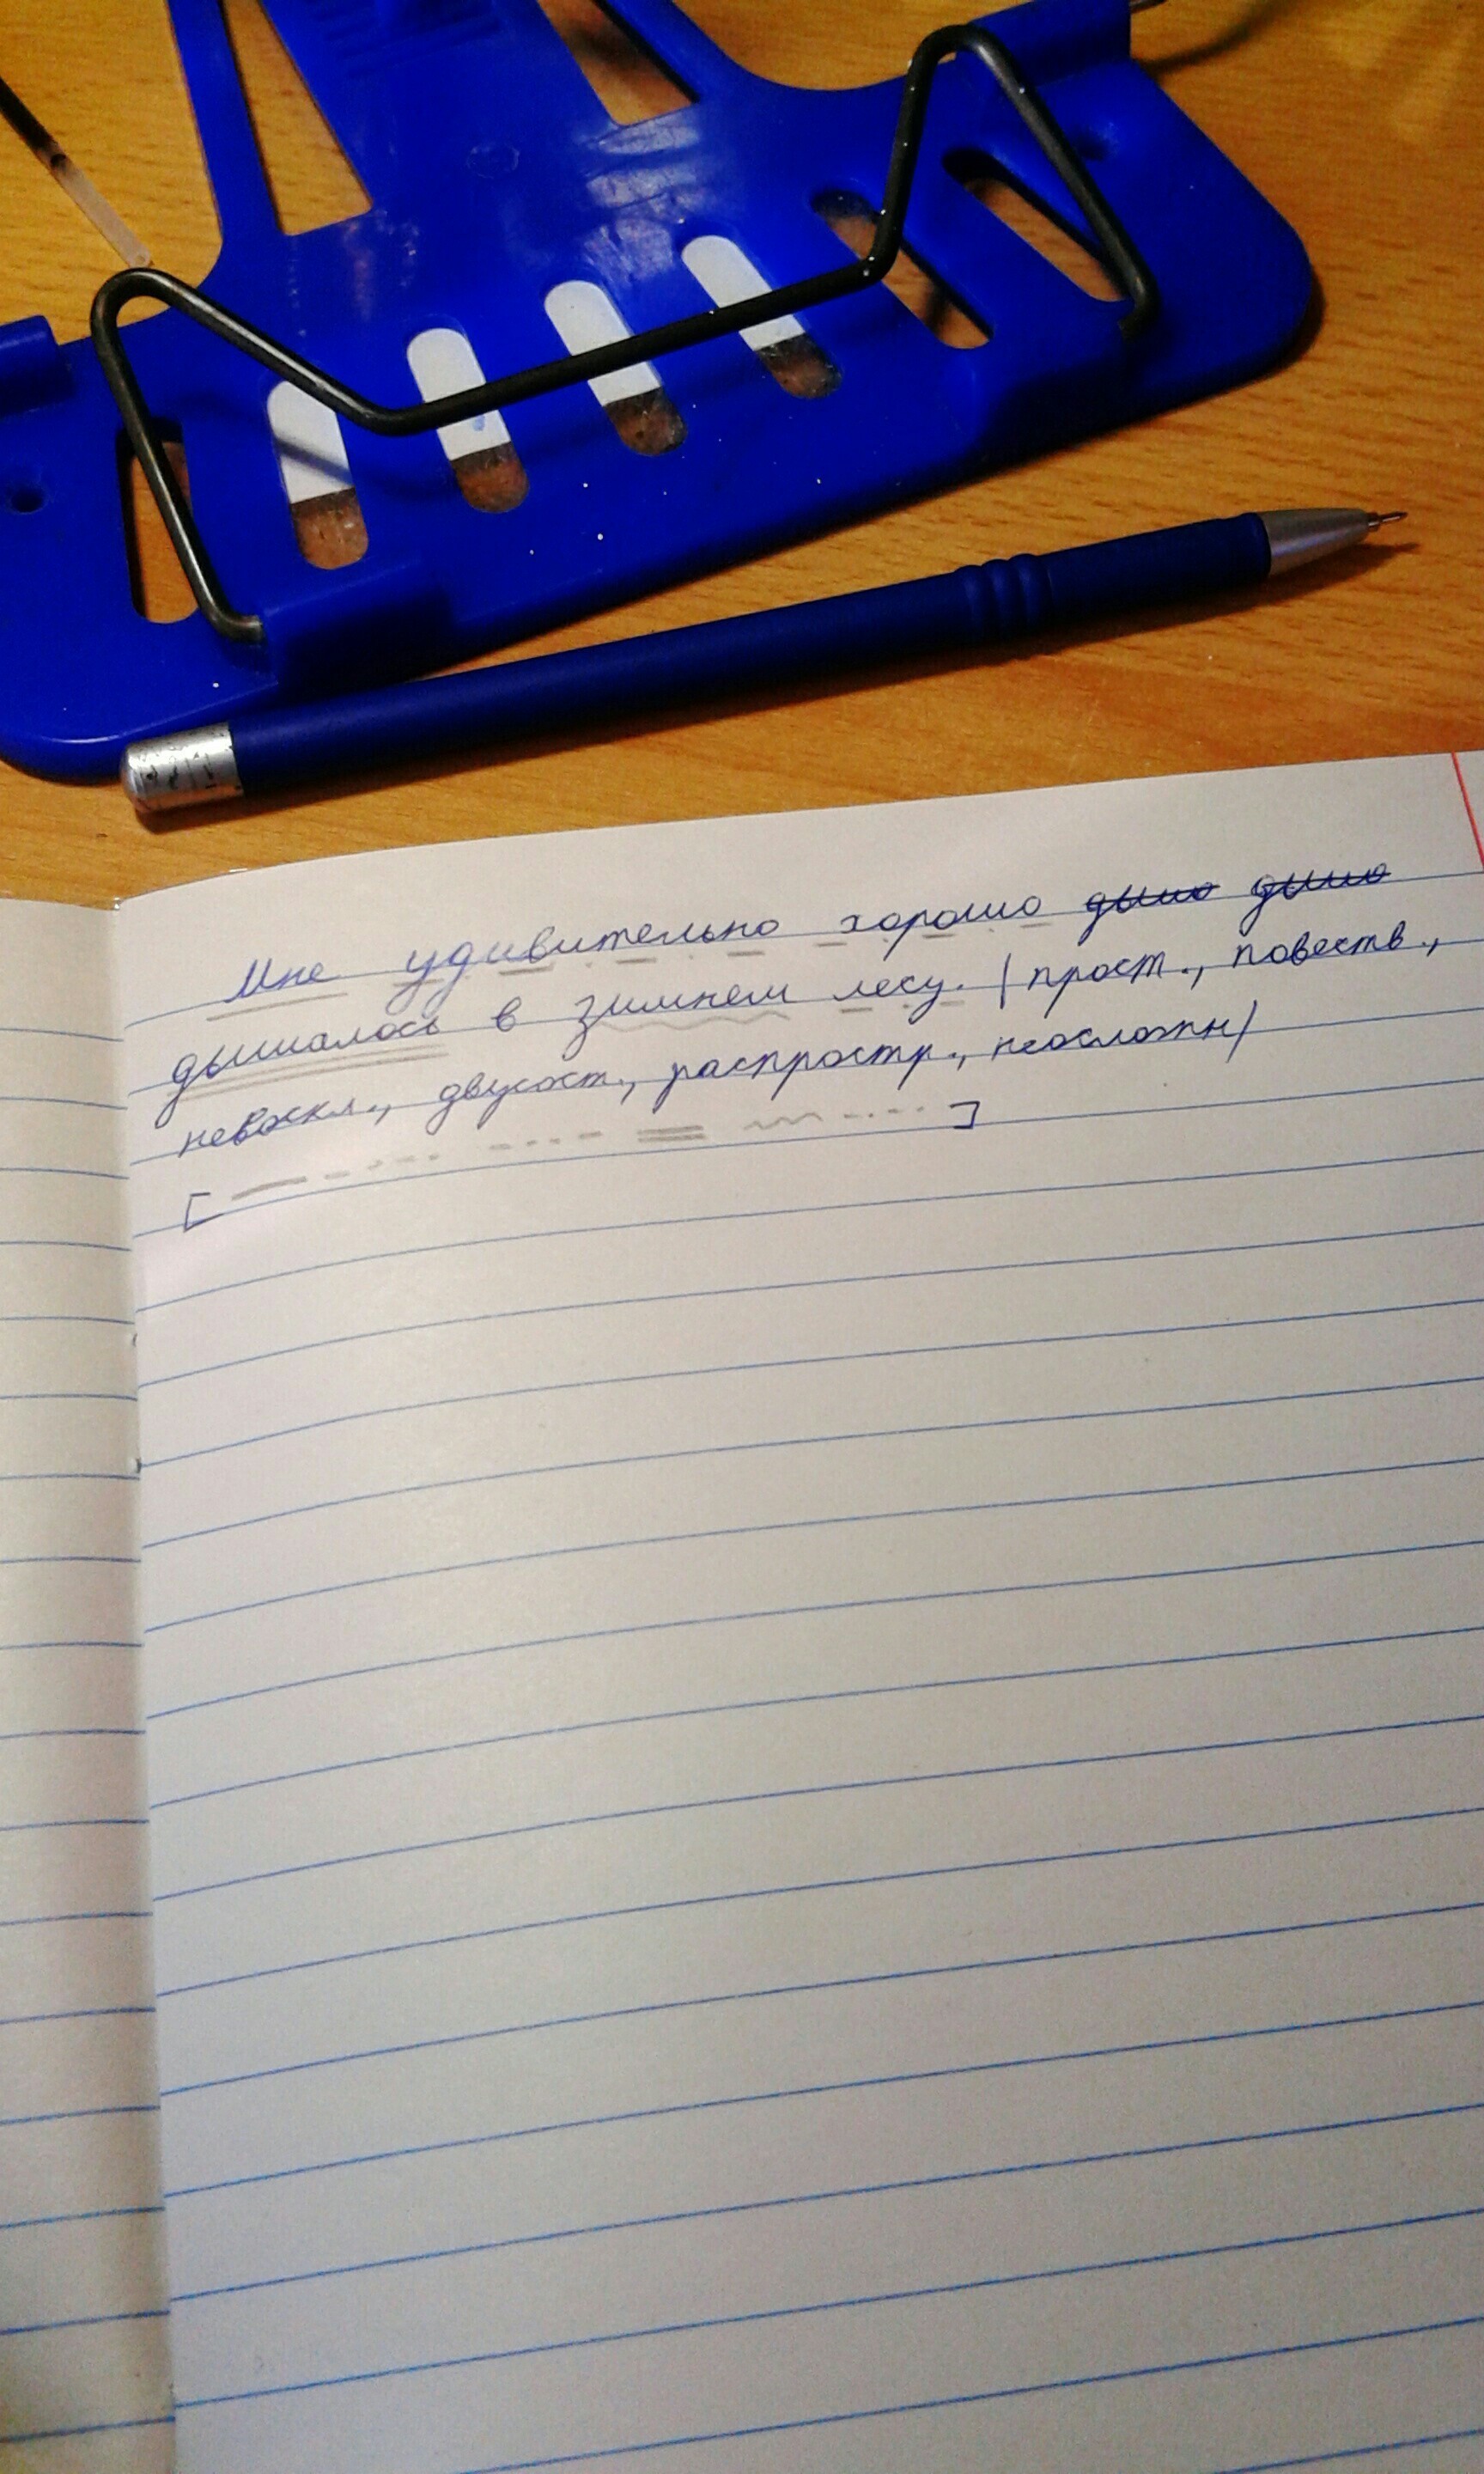 Мне удивительно хорошо дыша дыша
дышалось в зимнем лесу. (прост., повеств.,
невоскл., двусост., распростр., неосложн)
[ ]